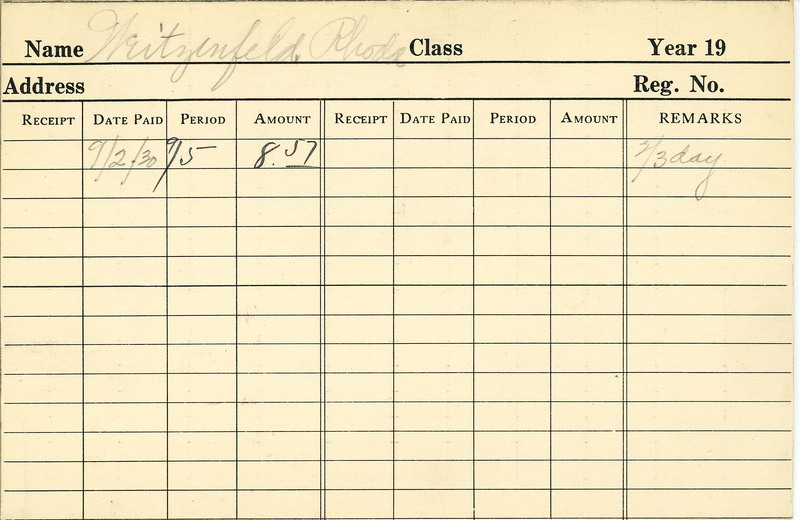 Name Weitzenfeld, Rhoda Class Year 19
Address Reg. No.
RECEIPT DATE PAID PERIOD AMOUNT RECEIPT DATE PAID PERIOD AMOUNT REMARKS
9/2/30 9/5 8.57 2/3 day